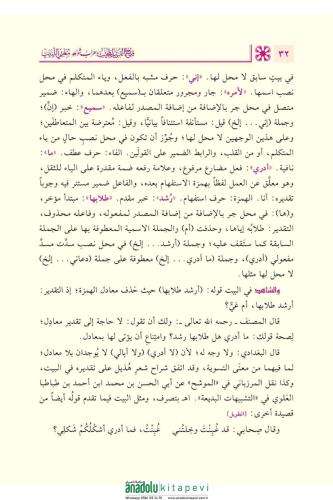 ٣٢
في بيتٍ سابق لا محل لها. «إني»: حرف مشبه بالفعل، وياء المتكلم في محل
نصب اسمها. «لأمره»: جار ومجرور متعلقان بـ(سميع) بعدهما، والهاء: ضمير
متصل في محل جر بالإضافة من إضافة المصدر لفاعله. «سميع»: خبر (إنَّ)؛
وجملة (إني... إلخ) قيل: مستأنفة استئنافاً بيانيّاً، وقيل: مُعترضة بين المتعاطفين؛
وعلى هذين الوجهين لا محل لها؛ وجُوِّز أن تكون في محل نصب حالٍ من ياء
المتكلم، أو من القلب، والرابط الضمير على القولين. الفاء: حرف عطف. «ما»:
نافية. «أدري»: فعل مضارع مرفوع، وعلامة رفعه ضمة مقدرة على الياء للثقل،
وهو معلّق عن العمل لفظاً بهمزة الاستفهام بعده، والفاعل ضمير مستتر فيه وجوباً
تقديره: أنا. الهمزة: حرف استفهام. «رُشد»: خبر مقدم. «طلابها»: مبتدأ مؤخر،
و(ها): في محل جر بالإضافة من إضافة المصدر لمفعوله، وفاعله محذوف،
التقدير: طلابُه إياها، وحذفت (أم) والجملة الاسمية المعطوفة بها على الجملة
السابقة كما ستَقف عليه؛ وجملة (أرشد... إلخ) في محل نصب سدَّت مسدَّ
مفعولي (أدري)، وجملة (ما أدري... إلخ) معطوفة على جملة (دعاني... إلخ)
لا محل لها مثلها.
والشاهد في البيت قوله: (أرشد طلابها) حيث حُذف معادل الهمزة؛ إذ التقدير:
أرشد طلابها، أم غيٌّ؟
قال المصنف ـ رحمه الله تعالى ـ: ولك أن تقول: لا حاجة إلى تقدير معادل؛
لِصحة قولك: ما أدري هل طلابها رشد؟ وامتِناعِ أن يؤتى لها بمعادل.
قال البغدادي: ولا وجه له؛ لأن (لا أدري) و(لا أبالي) لا يُوجدان بلا معادل؛
لما فيهما من معنى التسوية، وقد اتفق شراح شعر هُذيل على تقديره في البيت،
وكذا نقل المرزباني في «الموشح» عن أبي الحسن بن محمد ابن أحمد بن طباطبا
العَلوي في «التشبيهات البديعة». اهـ بتصرف، ومثل البيت فيما تقدم قولُه أيضاً من
قصيدة أخرى: [الطويل]
وقال صِحابي: قد غُبِنْتَ وخِلتُني غُبِنْتُ، فما أدري أشكلُكُمُ شكلِي؟
anadolukitapevi